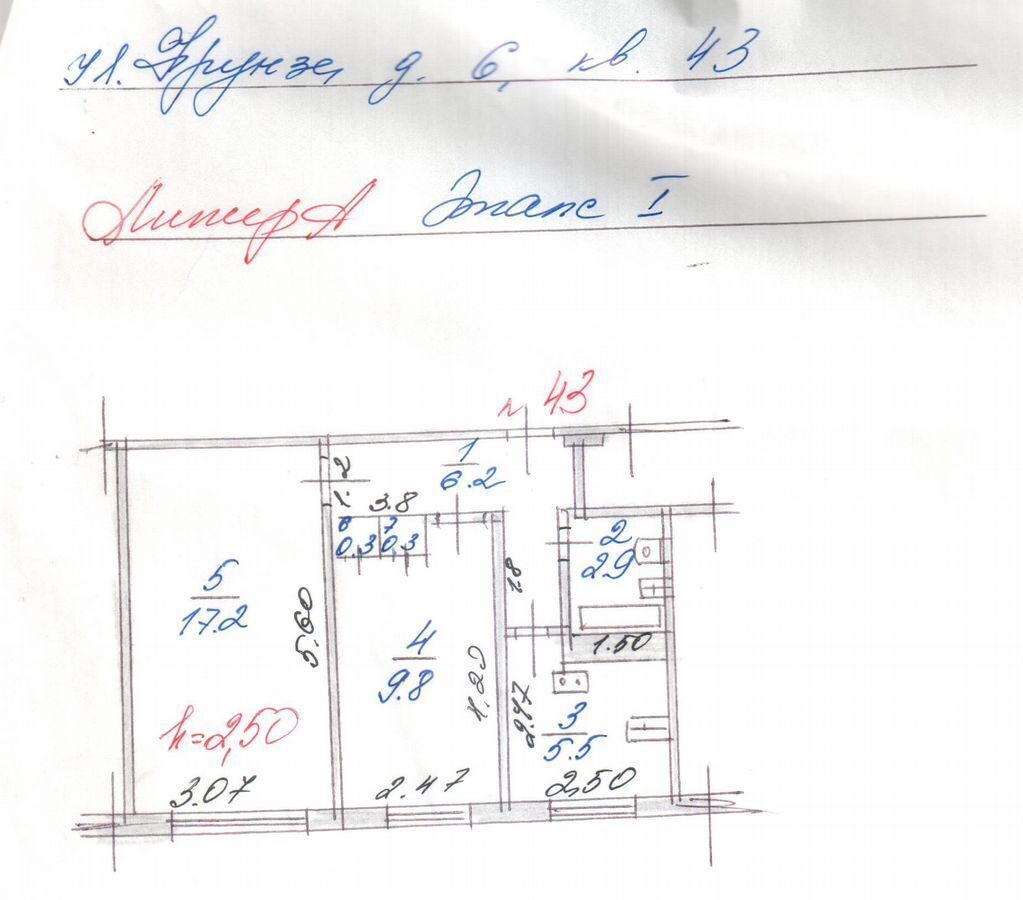 ул. Фрунзе, д. 6, кв. 43
Литер А Этаж I
п 43
1
6.2
1.2
3.8
6
0.3
7
0.3
2
2.9
1.8
5
17.2
5.60
1.50
4
9.8
4.20
2.47
3
5.5
h=2,50
3.07
2.47
2,50